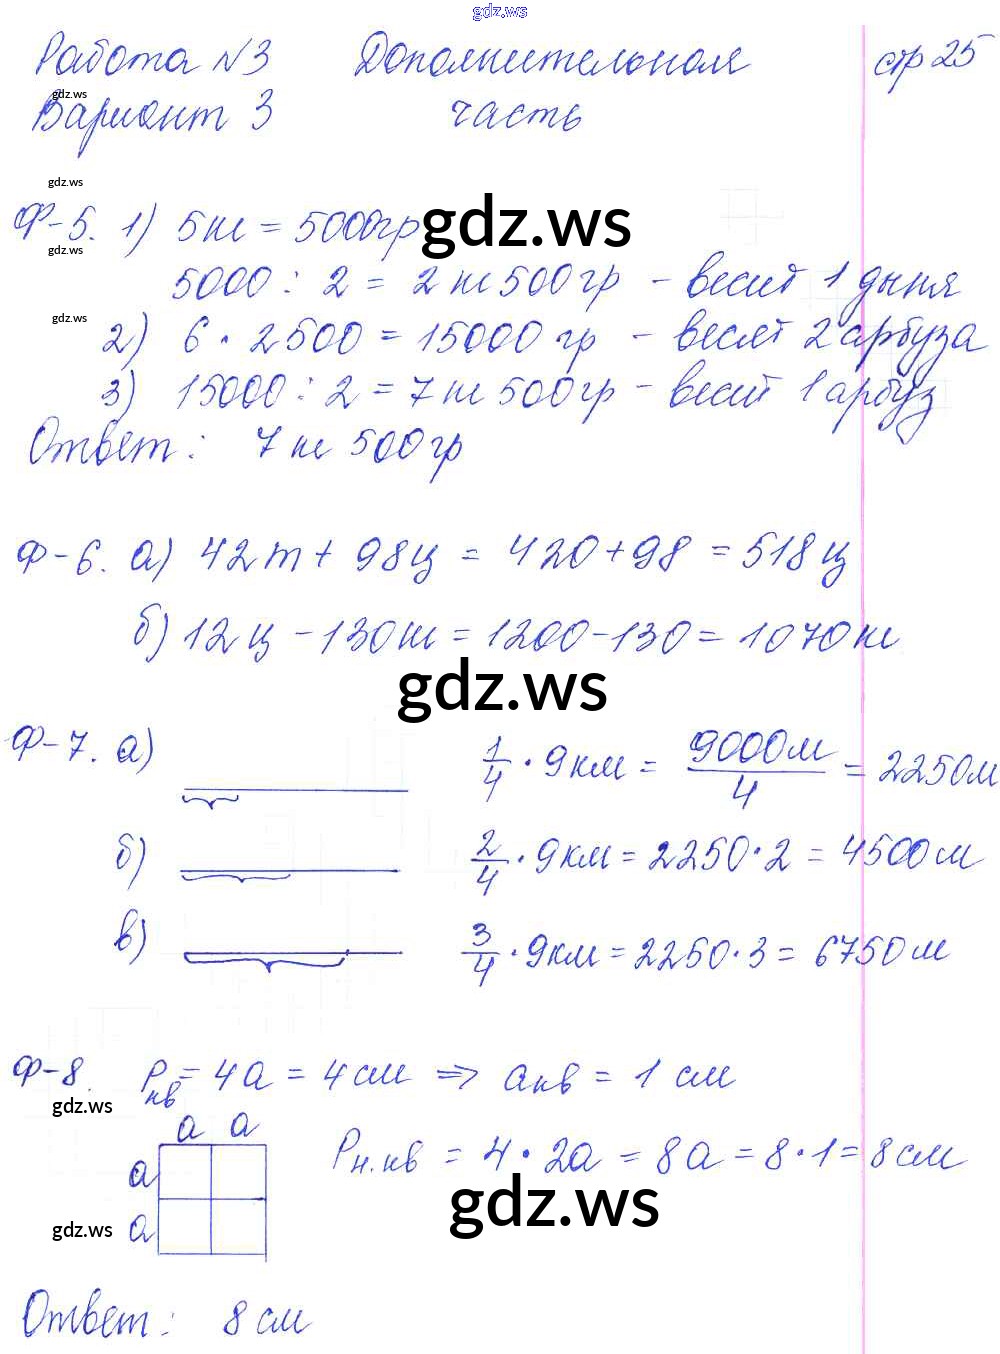 gdz.ws
Работа №3 Дополнительная стр 25
gdz.ws
Вариант 3 часть
gdz.ws
Ф-5. 1) 5кг = 5000гр gdz.ws
gdz.ws
5000 : 2 = 2 кг 500 гр - весит 1 дыня
gdz.ws
2) 6 · 2500 = 15000 гр - весят 2 арбуза
3) 15000 : 2 = 7 кг 500гр - весит 1 арбуз
Ответ: 7 кг 500 гр
Ф-6. а) 42т + 98ц = 420+98 = 518 ц
б) 12 ц - 130кг = 1200-130 = 1070кг
gdz.ws
Ф-7. а) 1/4 · 9км = 9000м/4 = 2250м
б) 2/4 · 9км = 2250·2 = 4500м
в) 3/4 · 9км = 2250·3 = 6750м
Ф-8. Pкв = 4а = 4 см ⇒ aкв = 1 см
gdz.ws
а а
а Pн.кв = 4 · 2а = 8а = 8·1 = 8см
gdz.ws
а gdz.ws
Ответ: 8 см